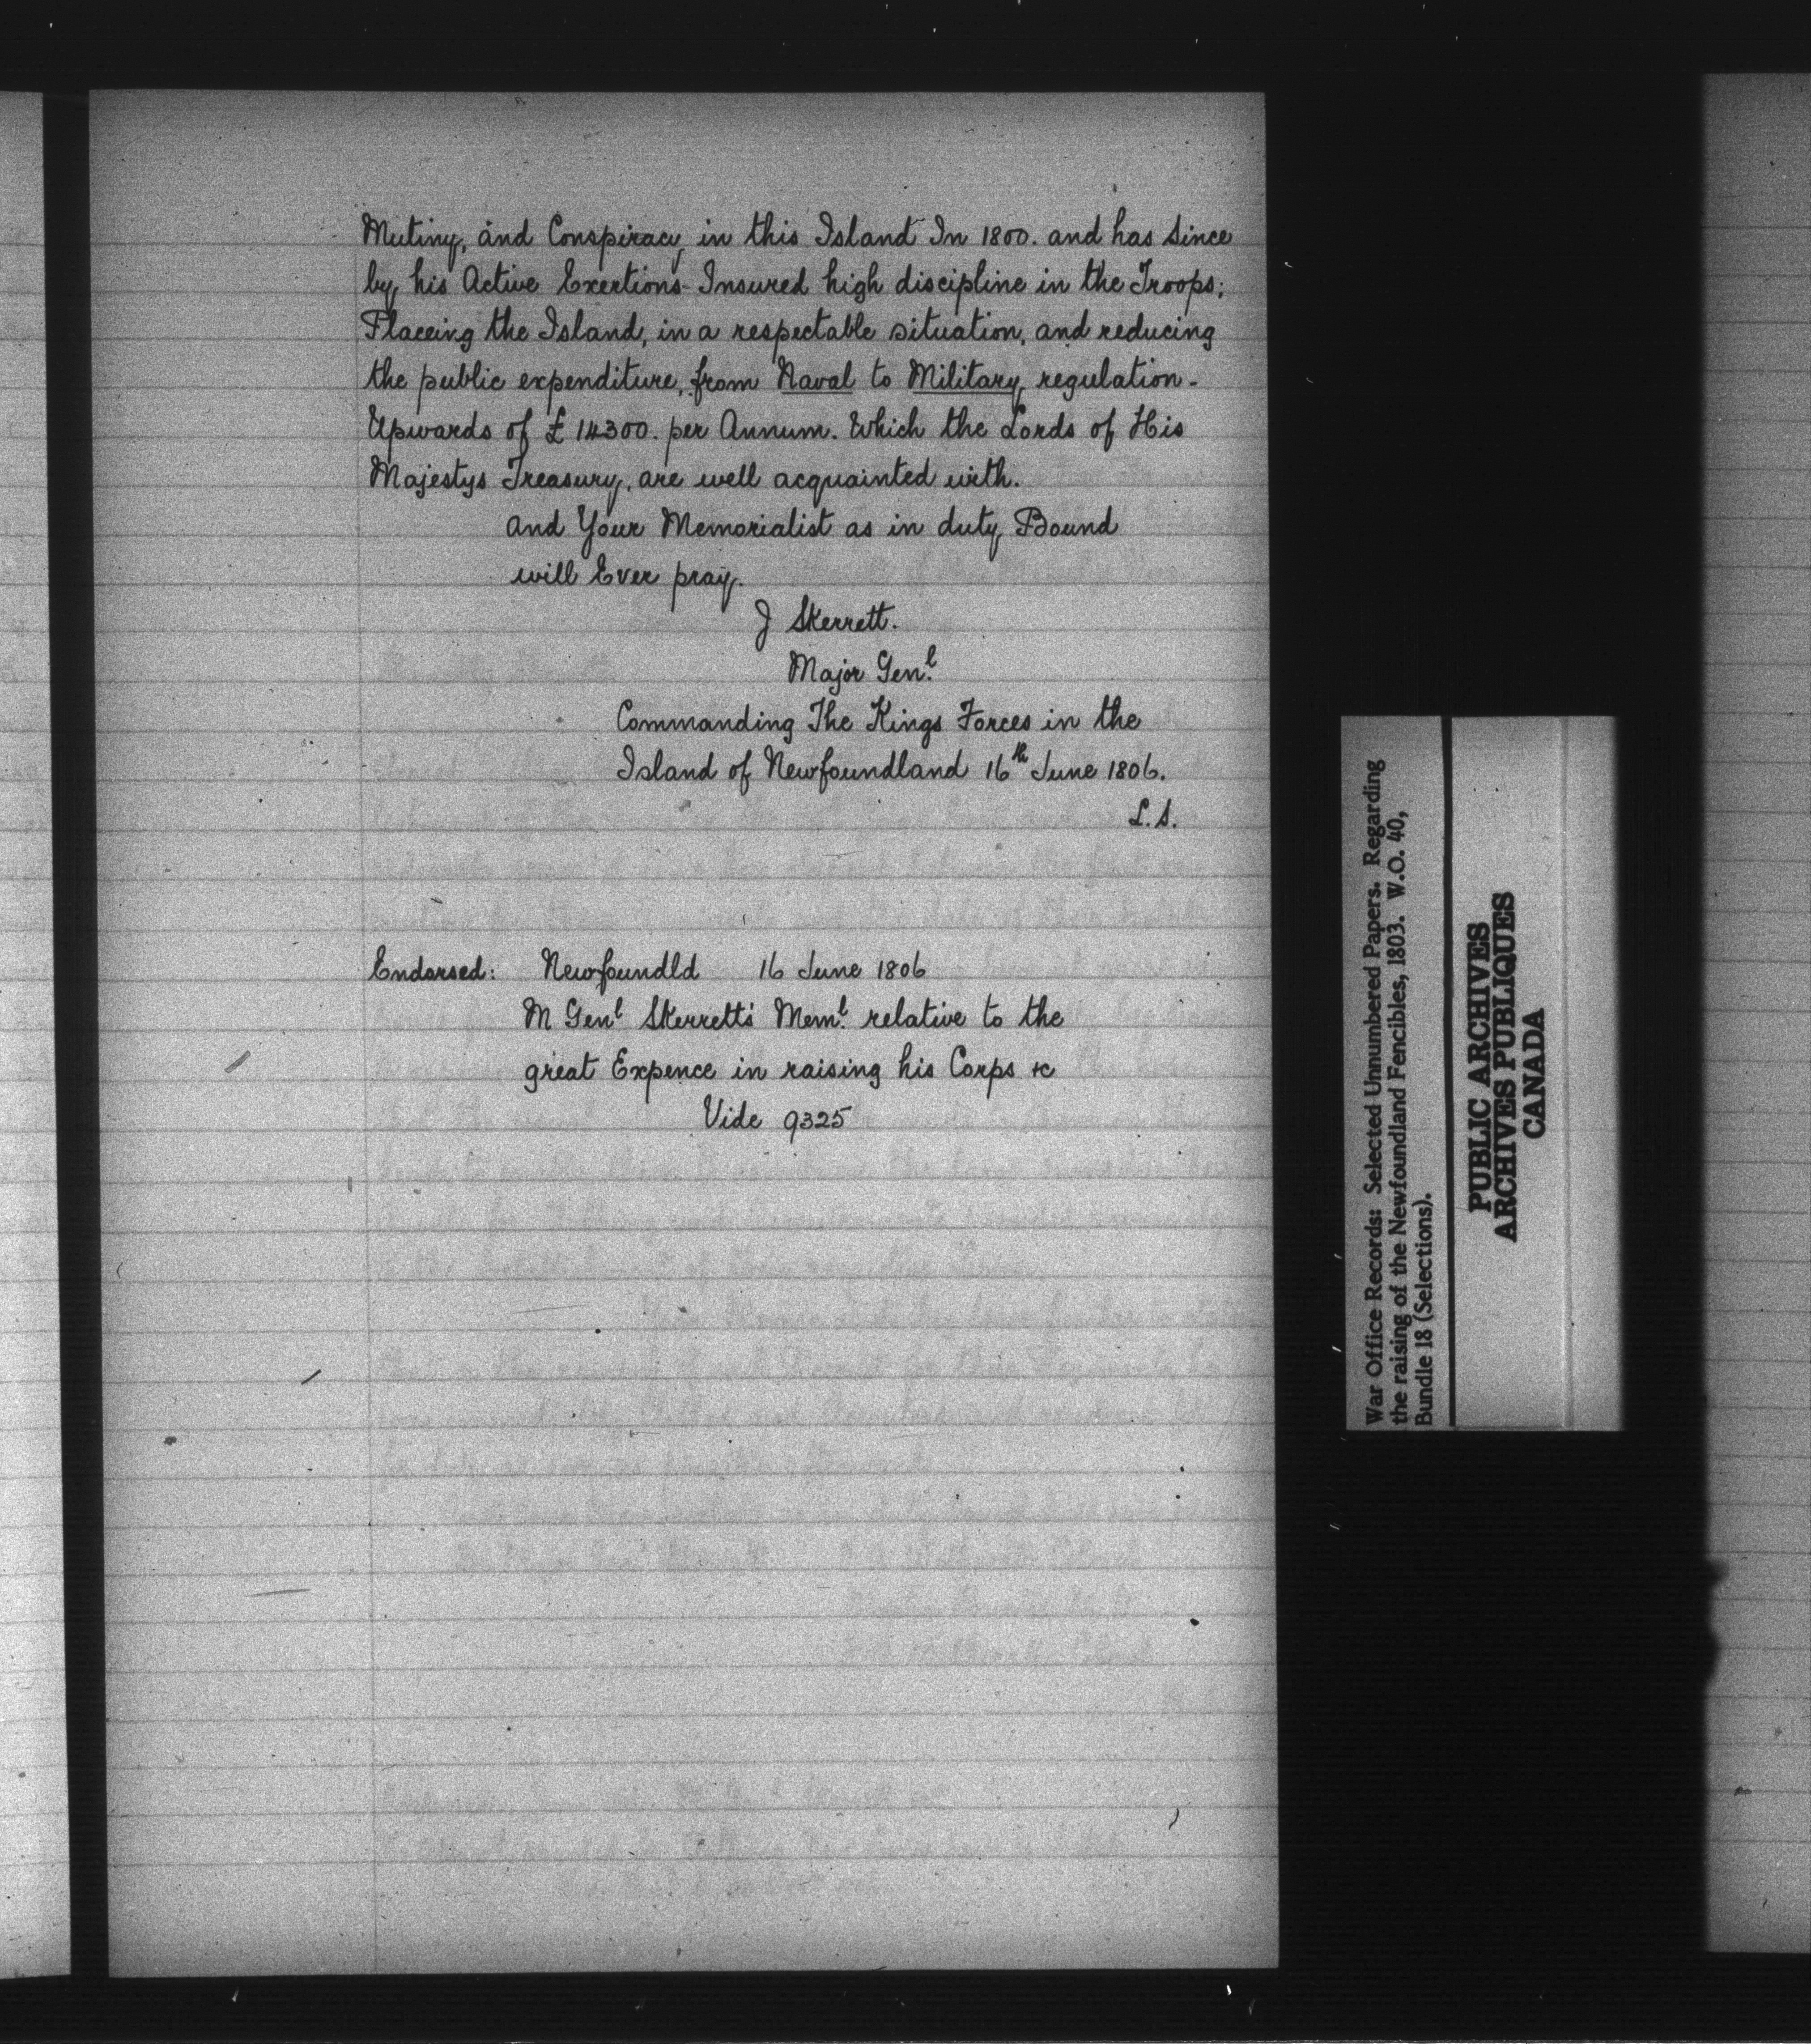 Mutiny, and Conspiracy in this Island In 1800. and has Since
by his Active Exertions Insured high discipline in the Troops;
Placeing the Island, in a respectable situation, and reducing
the public expenditure, from Naval to Military regulation -
Upwards of £ 14300. per Annum. Which the Lords of His
Majestys Treasury, are well acquainted with.
and Your Memorialist as in duty Bound
will Ever pray.
J Skerrett.
Major Genl.
Commanding The Kings Forces in the
Island of Newfoundland 16th June 1806.
L.S.
Endorsed: Newfoundld 16 June 1806
M Genl Skerrett's Meml. relative to the
great Expence in raising his Corps &c
Vide 9325
War Office Records: Selected Unnumbered Papers. Regarding
the raising of the Newfoundland Fencibles, 1803. W.O. 40,
Bundle 18 (Selections).
PUBLIC ARCHIVES
ARCHIVES PUBLIQUES
CANADA